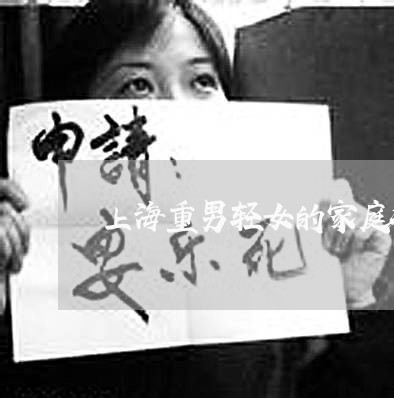 申請：
上海重男轻女的家庭
安乐死